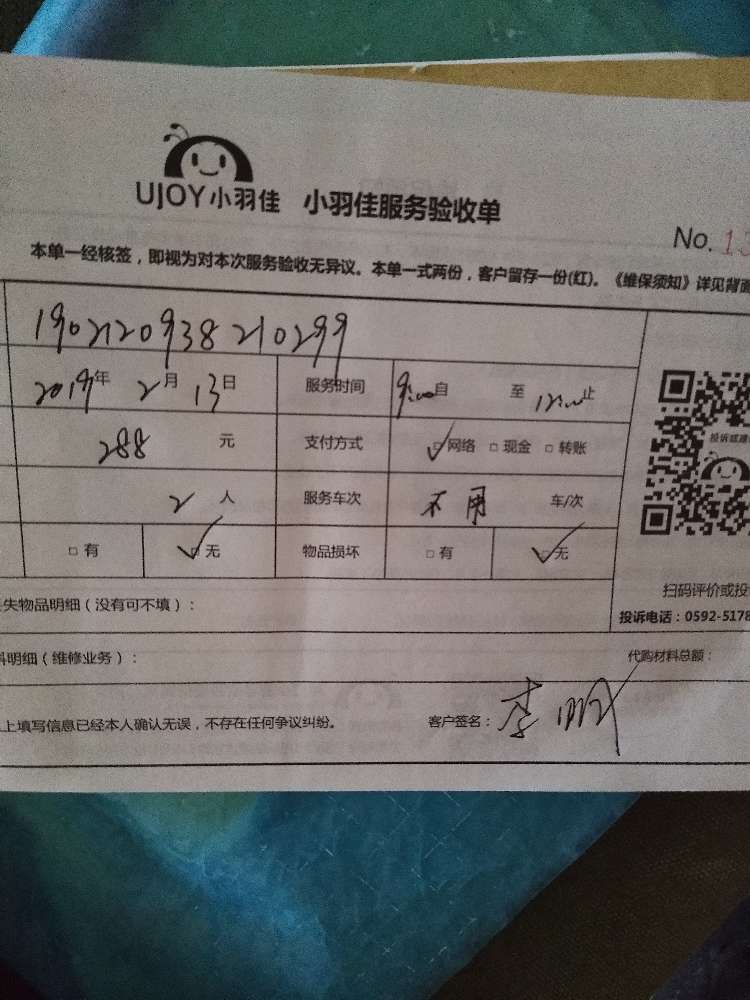 UJOY小羽佳 小羽佳服务验收单
No. 13
本单一经核签，即视为对本次服务验收无异议。本单一式两份，客户留存一份(红)。《维保须知》详见背面
1902120938210299
2019年 2月 13日 服务时间 9:00自 至 12:00止
288 元 支付方式 ☑网络 □现金 □转账
投诉或建
2 人 服务车次 不用 车/次
□有 ☑无 物品损坏 □有 ☑无
扫码评价或投
失物品明细（没有可不填）：
投诉电话：0592-5178
料明细（维修业务）： 代购材料总额：
上填写信息已经本人确认无误，不存在任何争议纠纷。 客户签名：李